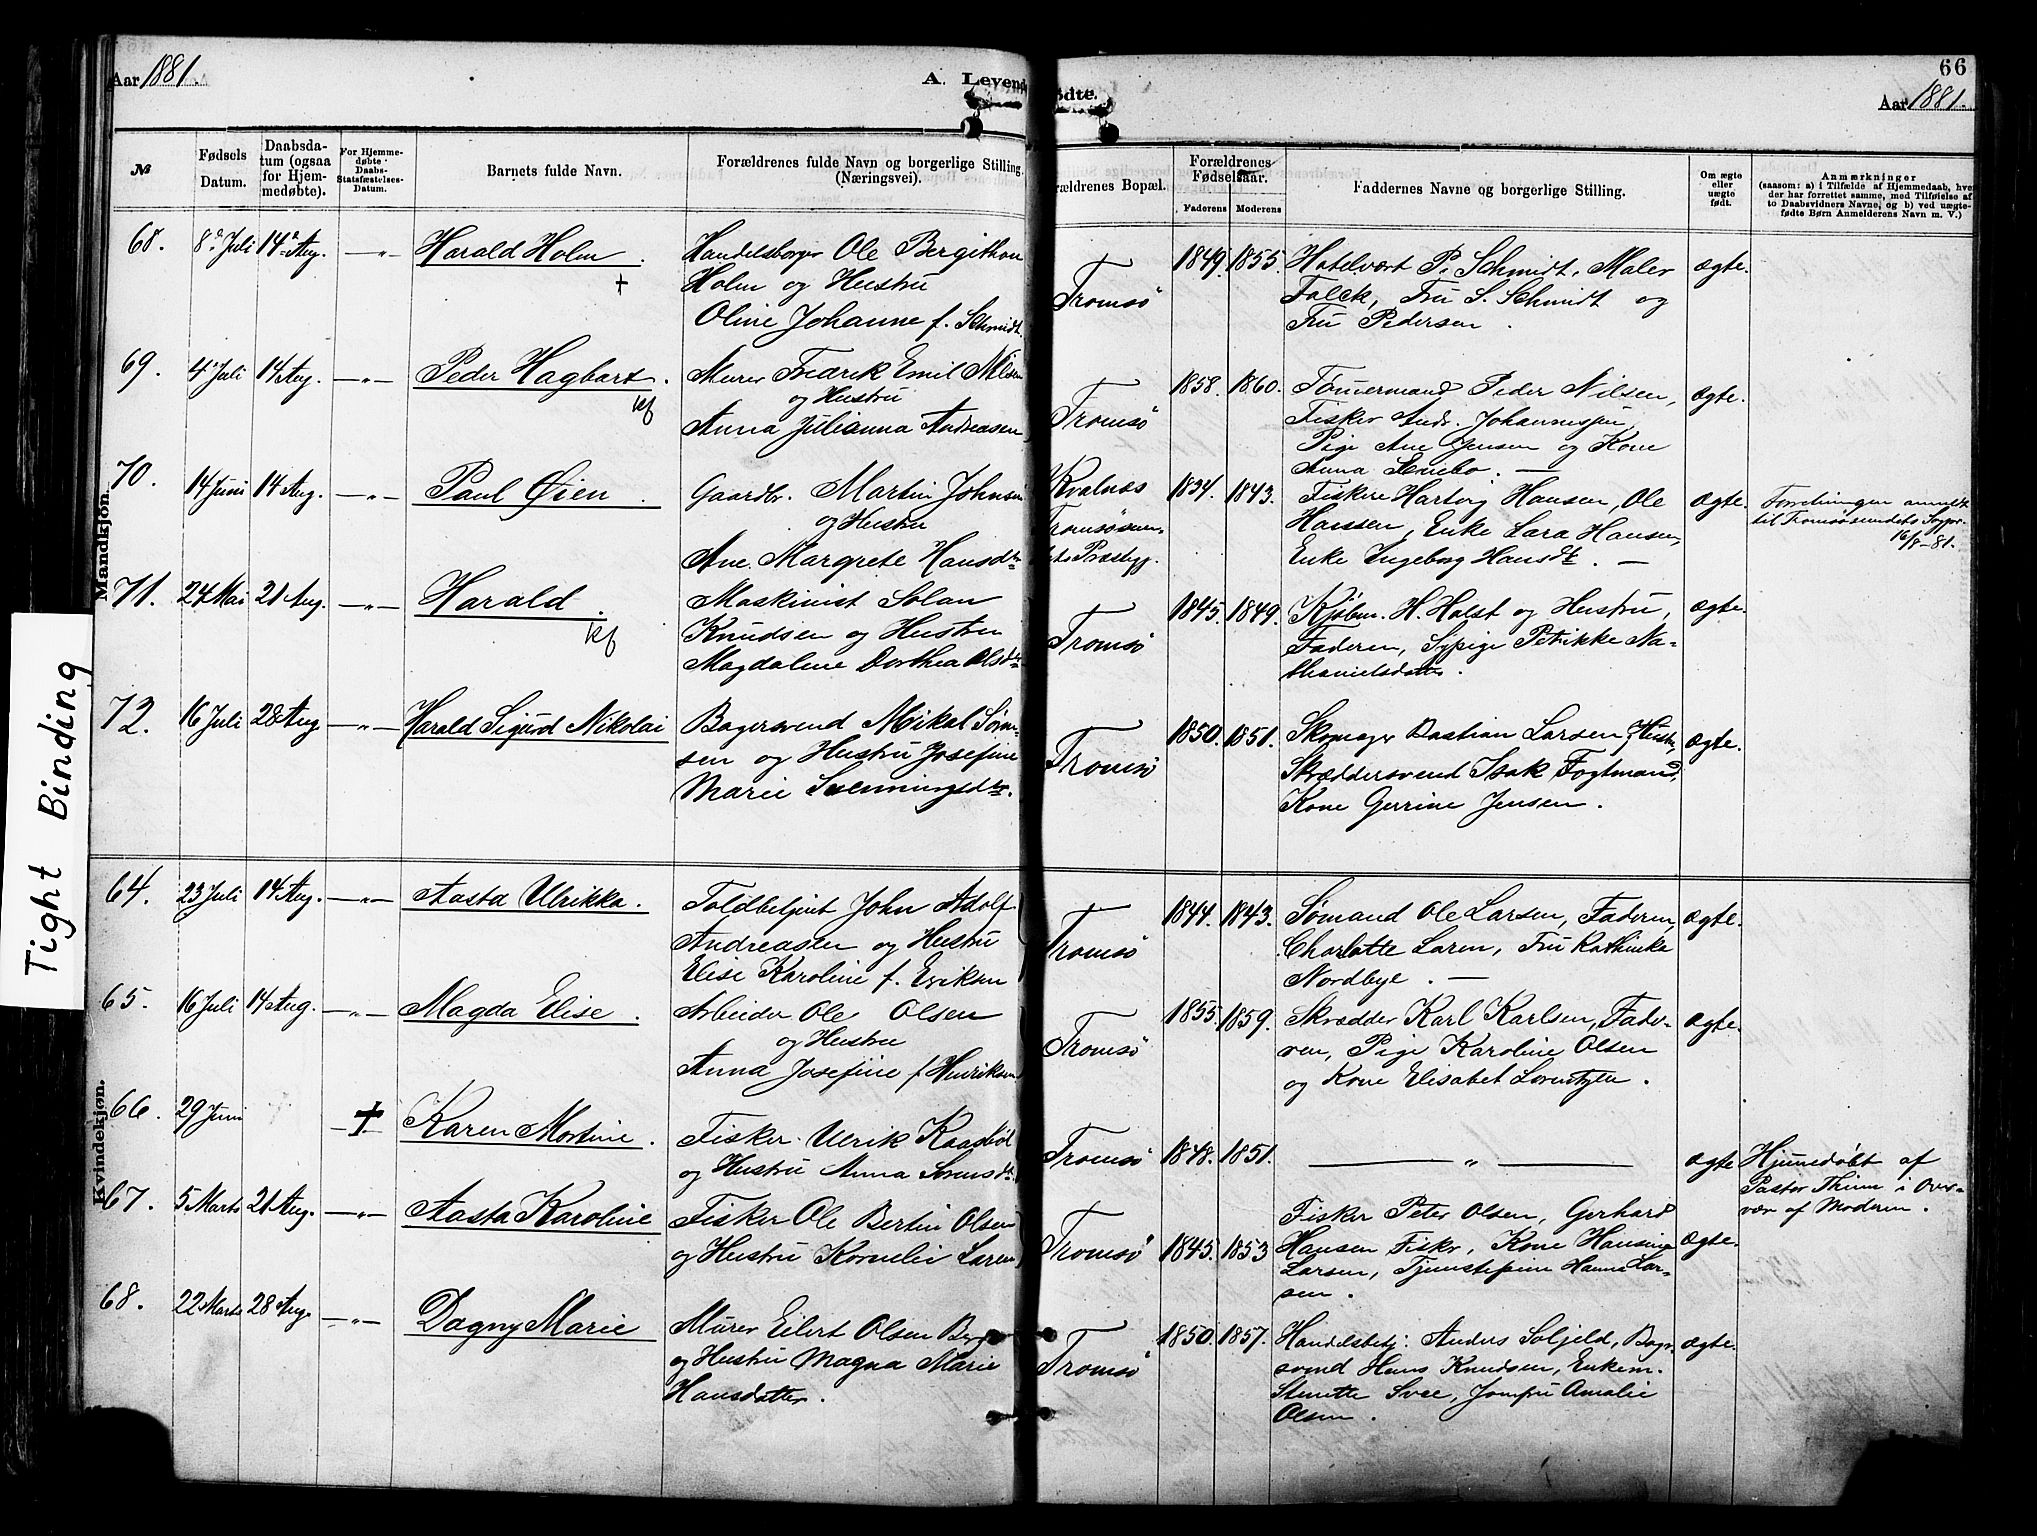 Aar 1881.
A. Levende
ødte.
66
Aar 1881.
№
Fødsels Datum.
Daabsdatum (ogsaa for Hjemmedøbte).
For Hjemmedøbte Daabs-Statsfæstelses-Datum.
Barnets fulde Navn.
Forældrenes fulde Navn og borgerlige Stilling.
(Næringsvei).
rældrenes Bopæl.
Forældrenes Fødselsaar.
Faderens Moderens
Faddernes Navne og borgerlige Stilling.
Om ægte eller uægte født.
Anmærkninger
(saasom: a) i Tilfælde af Hjemmedaab, hve
der har forrettet samme, med Tilføielse af
to Daabsvidners Navne, og b) ved uægte-
fødte Børn Anmelderens Navn m. V.)
Mandkjøn.
68. 8de Juli 14de Aug. —"— Harald Holm. +
Handelsborger Ole Bergithon
Holm og Hustru
Oline Johanne f. Schmidt.
Tromsø 1849. 1855.
Hotelvært P. Schmidt, Maler
Falck, Fru S. Schmidt og
Fru Pedersen.
ægte.
69. 4 Juli 14 Aug. —"— Peder Hagbart. kf
Murer Fredrik Emil Nilsen
og Hustru
Anna Julianna Andreasen
Tromsø 1858. 1860.
Tømmermand Peder Nilsen,
Fisker Andr. Johannesen,
Pige Ane Jensen og Kone
Anna —
ægte.
70. 14 Juni 14 Aug. —"— Paul Øien.
Gaardbr. Martin Johnsen
og Hustru
Ane Margrete Hansdtr
Kvalnæs
Tromsøsun-
dets Præstegj.
1834. 1843.
Fiskere Hartvig Hansen, Ole
Hanssen, Enke Lara Hansen,
Enke Ingeborg Hansdtr. —
ægte.
Forretningen anmeldt
til Tromsøsundets Sogpr.
16/8-81.
71. 24 Mai 21 Aug. —"— Harald. kf
Maskinist Solan
Knudsen og Hustru
Magdalene Dorthea Olsdtr
Tromsø 1845. 1849.
Kjøbm. H. Holst og Hustru,
Faderen, Sypige Petrikke Na-
thanielsdatter.
ægte.
72. 16 Juli 28 Aug —"— Harald Sigurd Nikolai
Bagersvend Mikal Søren-
sen og Hustru Josefine
Marie Svenningsdtr.
Tromsø 1850. 1851.
Skomager Bastian Larsen, Hustr,
Skræddersvend Isak Fogtmand,
Kone Gerrine Jensen.
ægte.
Kvindekjøn.
64. 23 Juli 14 Aug. —"— Aasta Ulrikka.
Toldbetjent John Adolf
Andreasen og Hustru
Elise Karoline f. Eriksen
Tromsø 1844. 1843.
Sømand Ole Larsen, Faderen,
Charlotte Laren, Fru Kathinka
Nordbye. —
ægte.
65. 16 Juli 14 Aug. —"— Magda Elise.
Arbeider Ole Olsen
og Hustru
Anna Josefine f Henriksen
Tromsø 1855. 1859.
Skrædder Karl Karlsen, Fade-
ren, Pige Karoline Olsen
og Kone Elisabet Lorentzen.
ægte.
66. 29 Juni + Karen Martine.
Fisker Ulrik Kaasbøl
og Hustru Anna Sørensdtr.
Tromsø 1848. 1851.
— " —
ægte
Hjemmedøbt af
Pastor Thiem i Over-
vær af Moderen.
67. 5 Marts 21 Aug. —"— Aasta Karoline
Fisker Ole Bertin Olsen
og Hustru Kornelie Laren
Tromsø 1845. 1853
Fisker Peter Olsen, Gerhard
Hansen Fiskr, Kone Hansine
Larsen, Tjenestepi Hanna Lar-
sen.
ægte.
68. 22 Marts 28 Aug. —"— Dagny Marie
Murer Eilert Olsen Berg
og Hustru Magna Marie
Hansdatter.
Tromsø 1850. 1857.
Handelsbetj: Anders Soljeld, Bagr-
svend Hans Knudsen, Enkem.
Svee, Jomfru Amalie
Olsen.
ægte.
Tight Binding